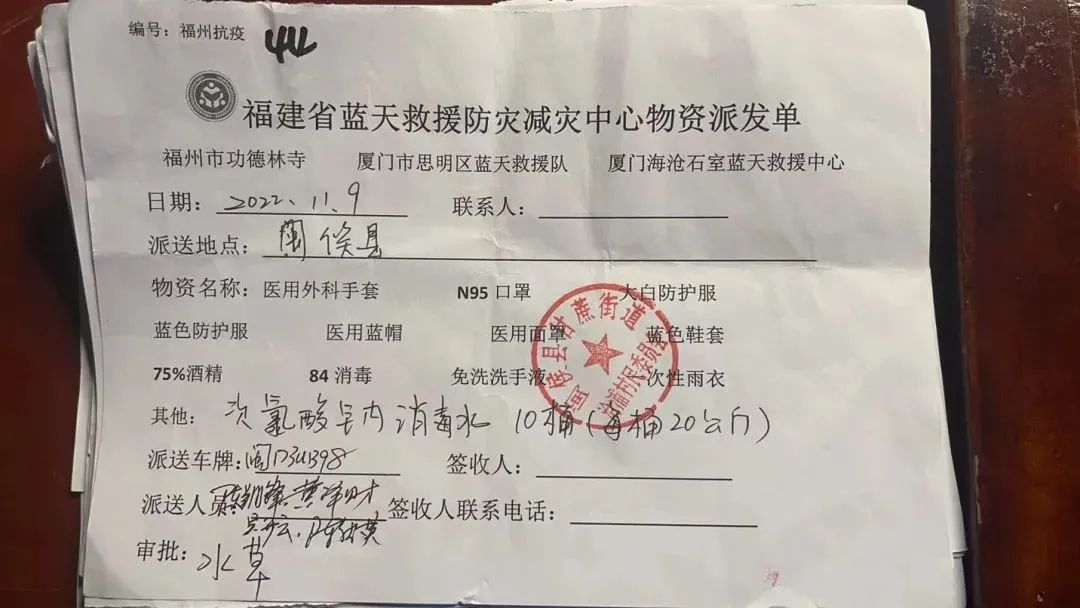 编号：福州抗疫 44
福建省蓝天救援防灾减灾中心物资派发单
福州市功德林寺 厦门市思明区蓝天救援队 厦门海沧石室蓝天救援中心
日期：2022、11、9 联系人：
派送地点：闽侯县
物资名称：医用外科手套 N95口罩 大白防护服
蓝色防护服 医用蓝帽 医用面罩 蓝色鞋套
75%酒精 84消毒 免洗洗手液 一次性雨衣
其他：次氯酸室内消毒水 10桶(每桶20公斤)
派送车牌：闽D3U398 签收人：
派送人员： 签收人联系电话：
审批：水草
闽侯县甘蔗街道 村民委员会